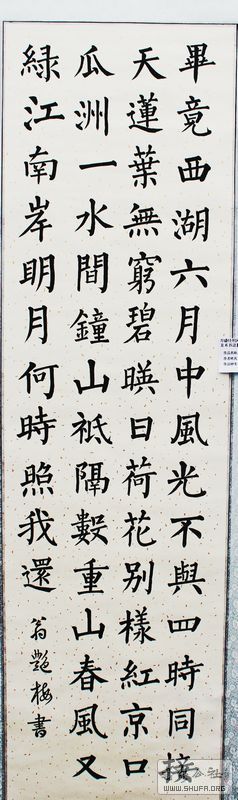 畢竟西湖六月中風光不與四時同接
天蓮葉無窮碧暎日荷花別樣紅京口
瓜洲一水間鐘山衹隔數重山春風又
綠江南岸明月何時照我還
翁艷梅書
WWW.SHUFA.ORG